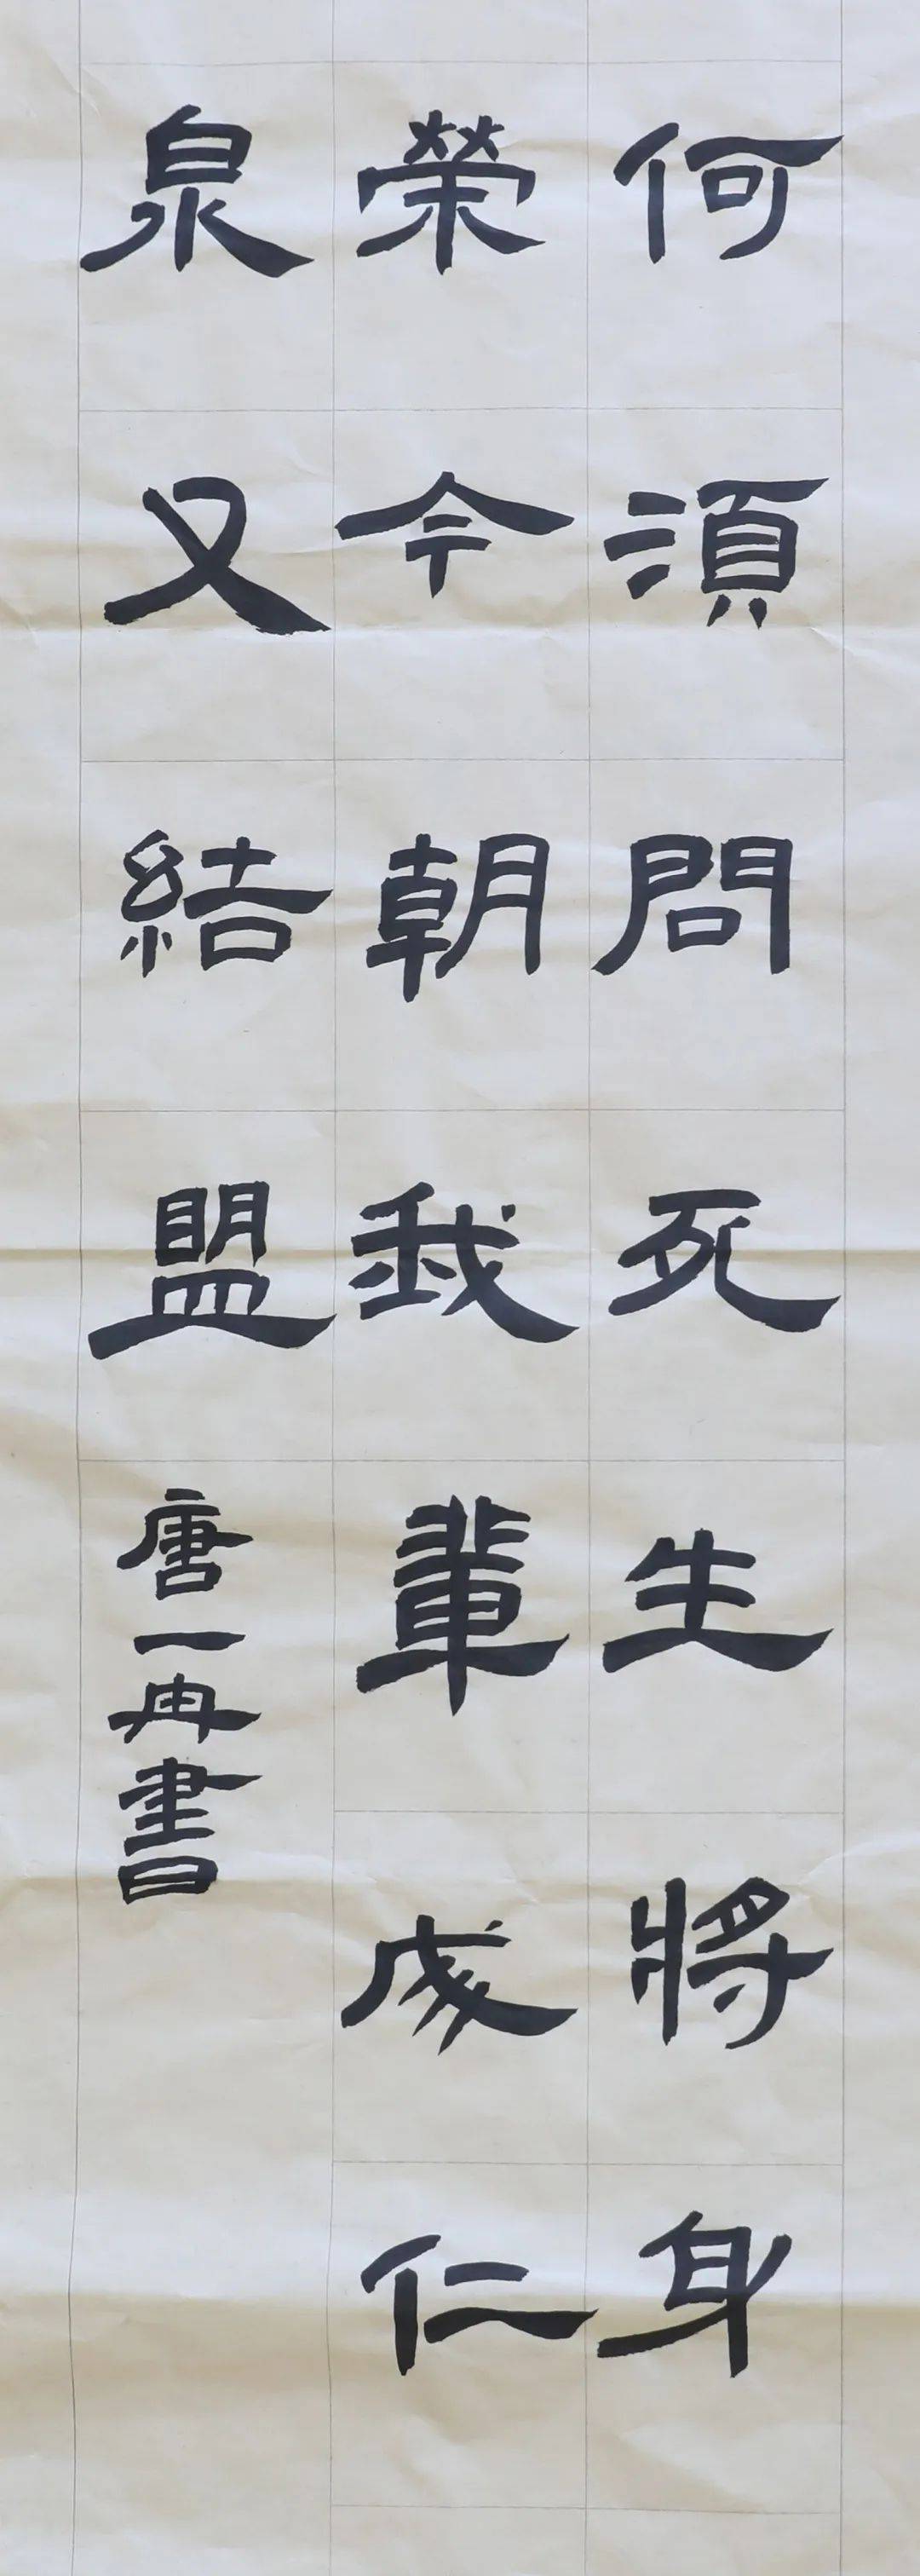 何須問死生將身
榮今朝我輩成仁
泉又結盟
唐一冉書